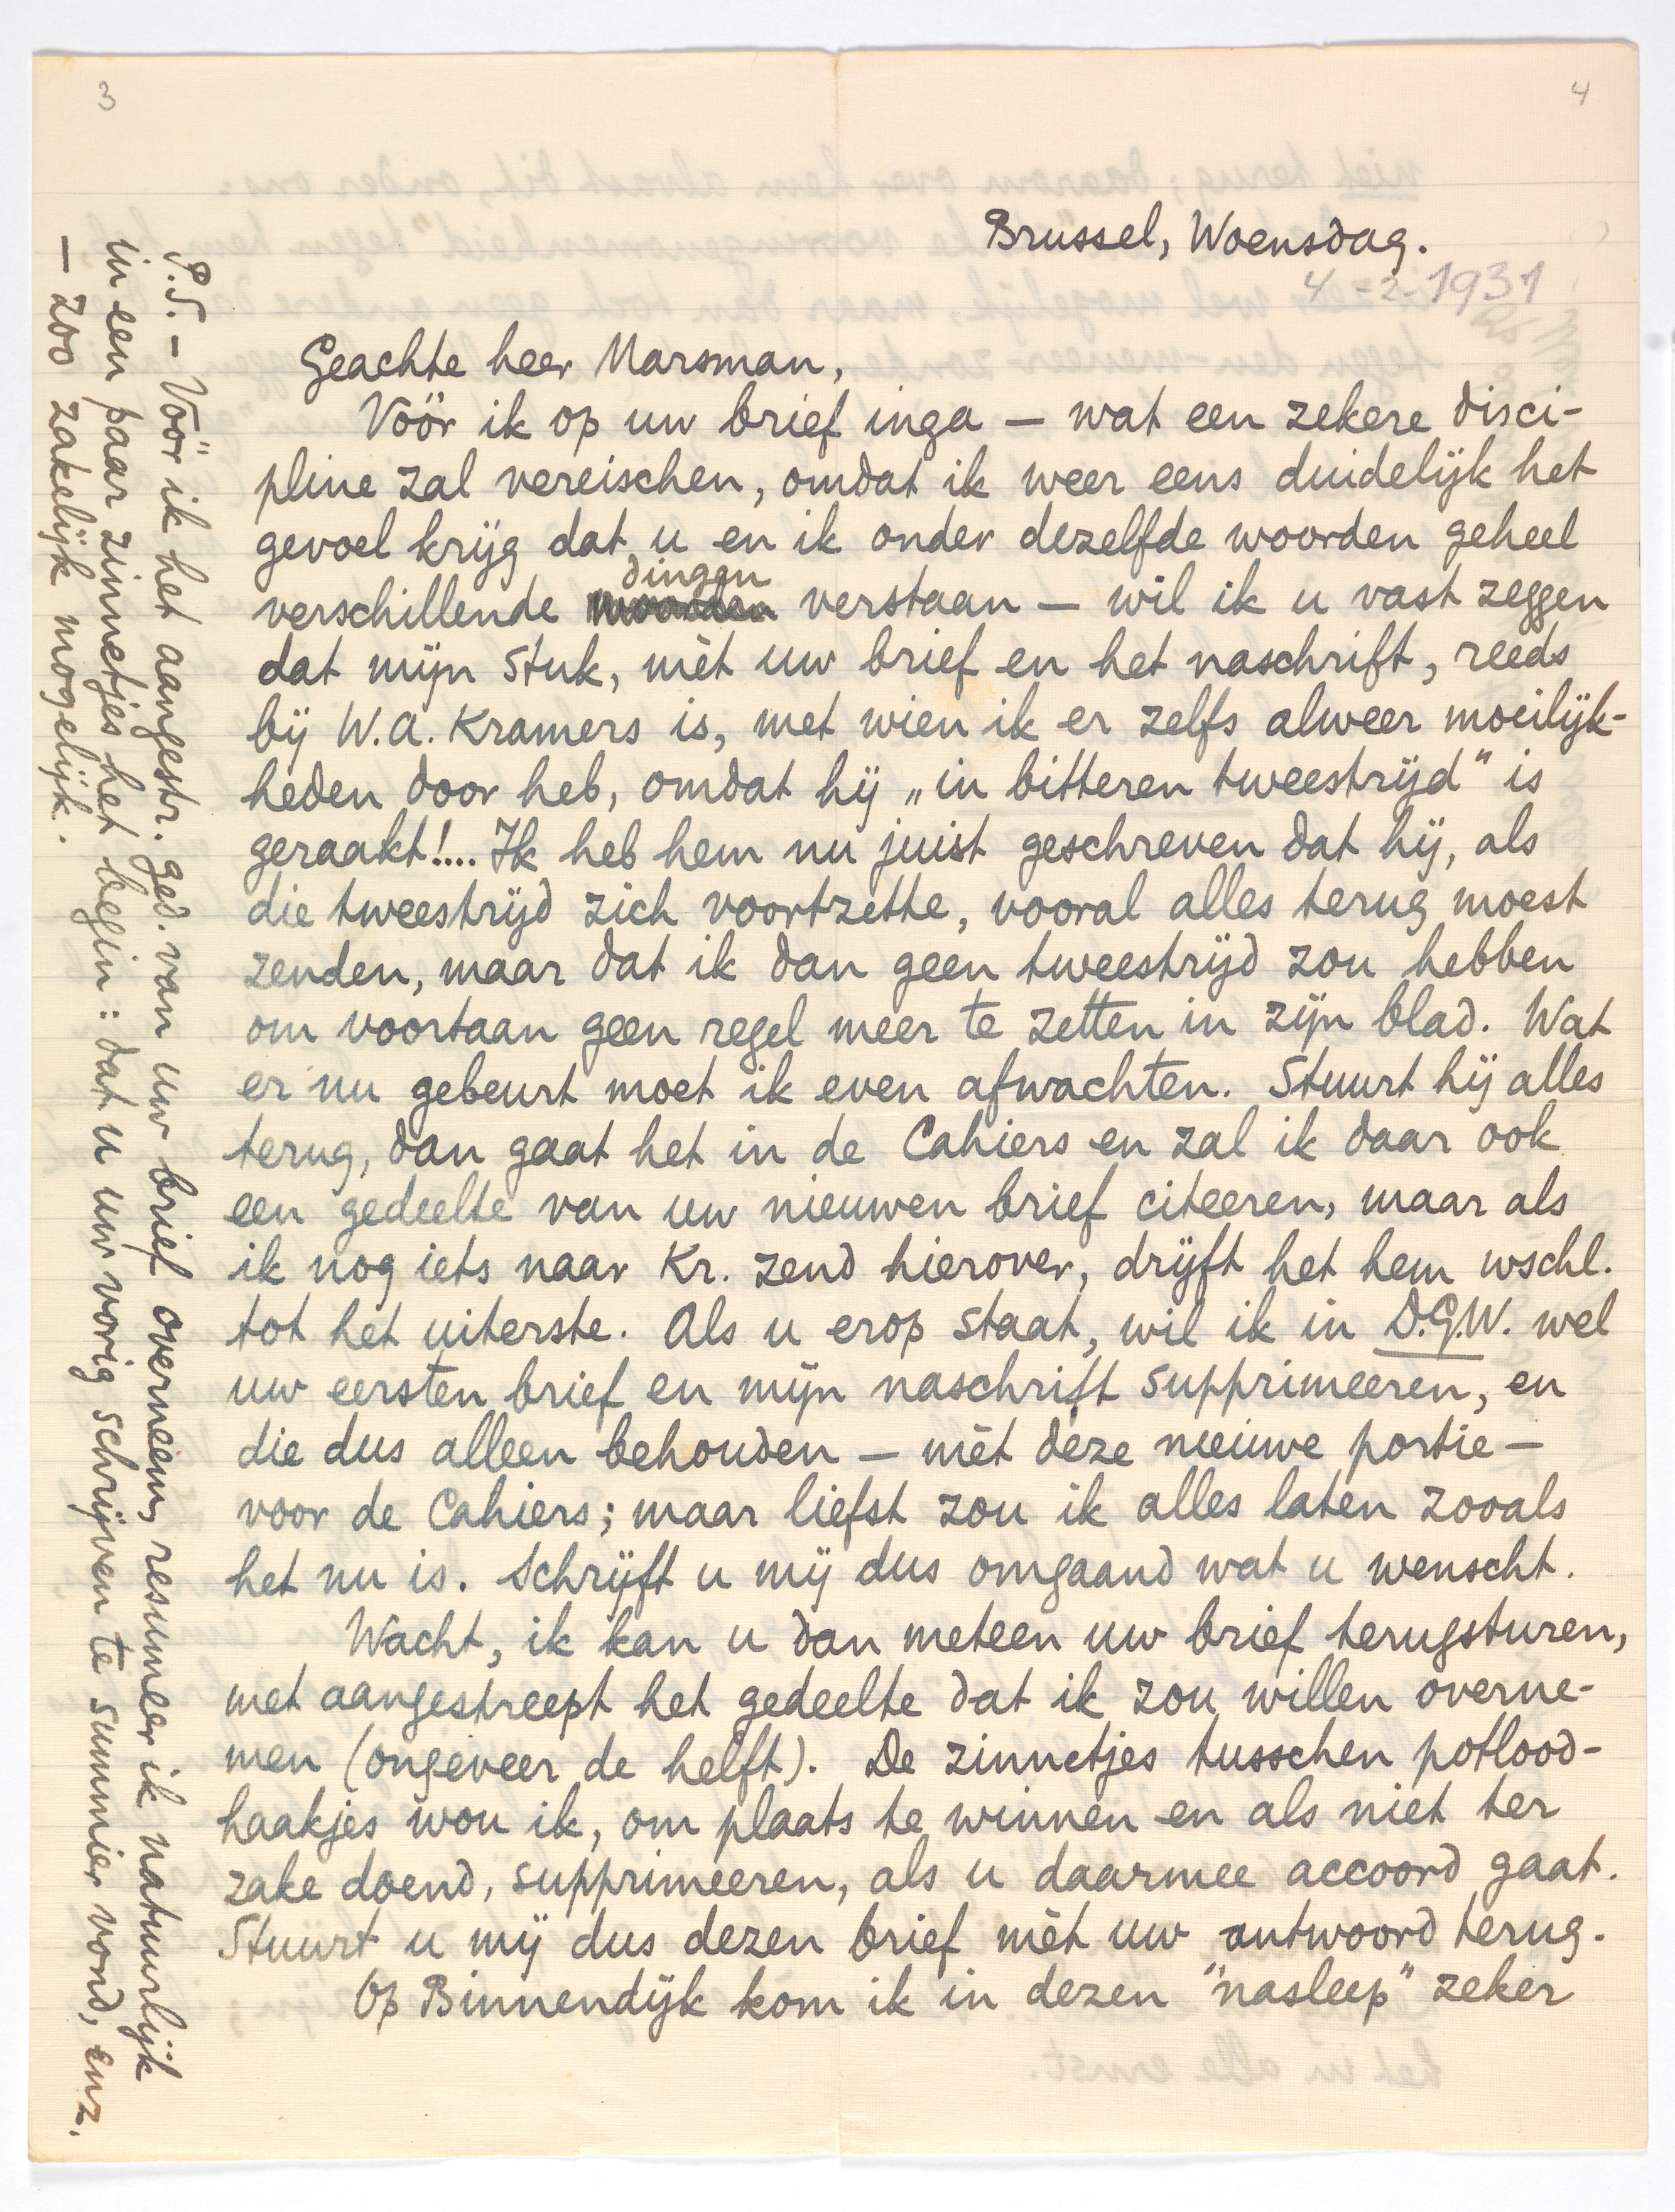 3
4
Brussel, Woensdag.
4-2-1931
Geachte heer Marsman,
Vóór ik op uw brief inga — wat een zekere disci-
pline zal vereischen, omdat ik weer eens duidelijk het
gevoel krijg dat u en ik onder dezelfde woorden geheel
dingen
verschillende woorden verstaan — wil ik u vast zeggen
dat mijn stuk, mèt uw brief en het naschrift, reeds
bij W.A. Kramers is, met wien ik er zelfs alweer moeilijk-
heden door heb, omdat hij „in bitteren tweestrijd" is
geraakt!... Ik heb hem nu juist geschreven dat hij, als
die tweestrijd zich voortzette, vooral alles terug moest
zenden, maar dat ik dan geen tweestrijd zou hebben
om voortaan geen regel meer te zetten in zijn blad. Wat
er nu gebeurt moet ik even afwachten. Stuurt hij alles
terug, dan gaat het in de Cahiers en zal ik daar ook
een gedeelte van uw nieuwen brief citeeren, maar als
ik nog iets naar Kr. zend hierover, drijft het hem wschl.
tot het uiterste. Als u erop staat, wil ik in D.G.W. wel
uw eersten brief en mijn naschrift supprimeeren, en
die dus alleen behouden — mèt deze nieuwe portie —
voor de Cahiers; maar liefst zou ik alles laten zooals
het nu is. Schrijft u mij dus omgaand wat u wenscht.
Wacht, ik kan u dan meteen uw brief terugsturen,
met aangestreept het gedeelte dat ik zou willen overne-
men (ongeveer de helft). De zinnetjes tusschen potlood-
haakjes wou ik, om plaats te winnen en als niet ter
zake doend, supprimeeren, als u daarmee accoord gaat.
Stuurt u mij dus dezen brief mèt uw antwoord terug.
Op Binnendijk kom ik in dezen "nasleep" zeker
P.S. — Vóór ik het aangestr. ged. van uw brief overneem, resumeer ik natuurlijk
in een paar zinnetjes het begin: dat u uw vorig schrijven te summier vond, enz.
— zoo zakelijk mogelijk.